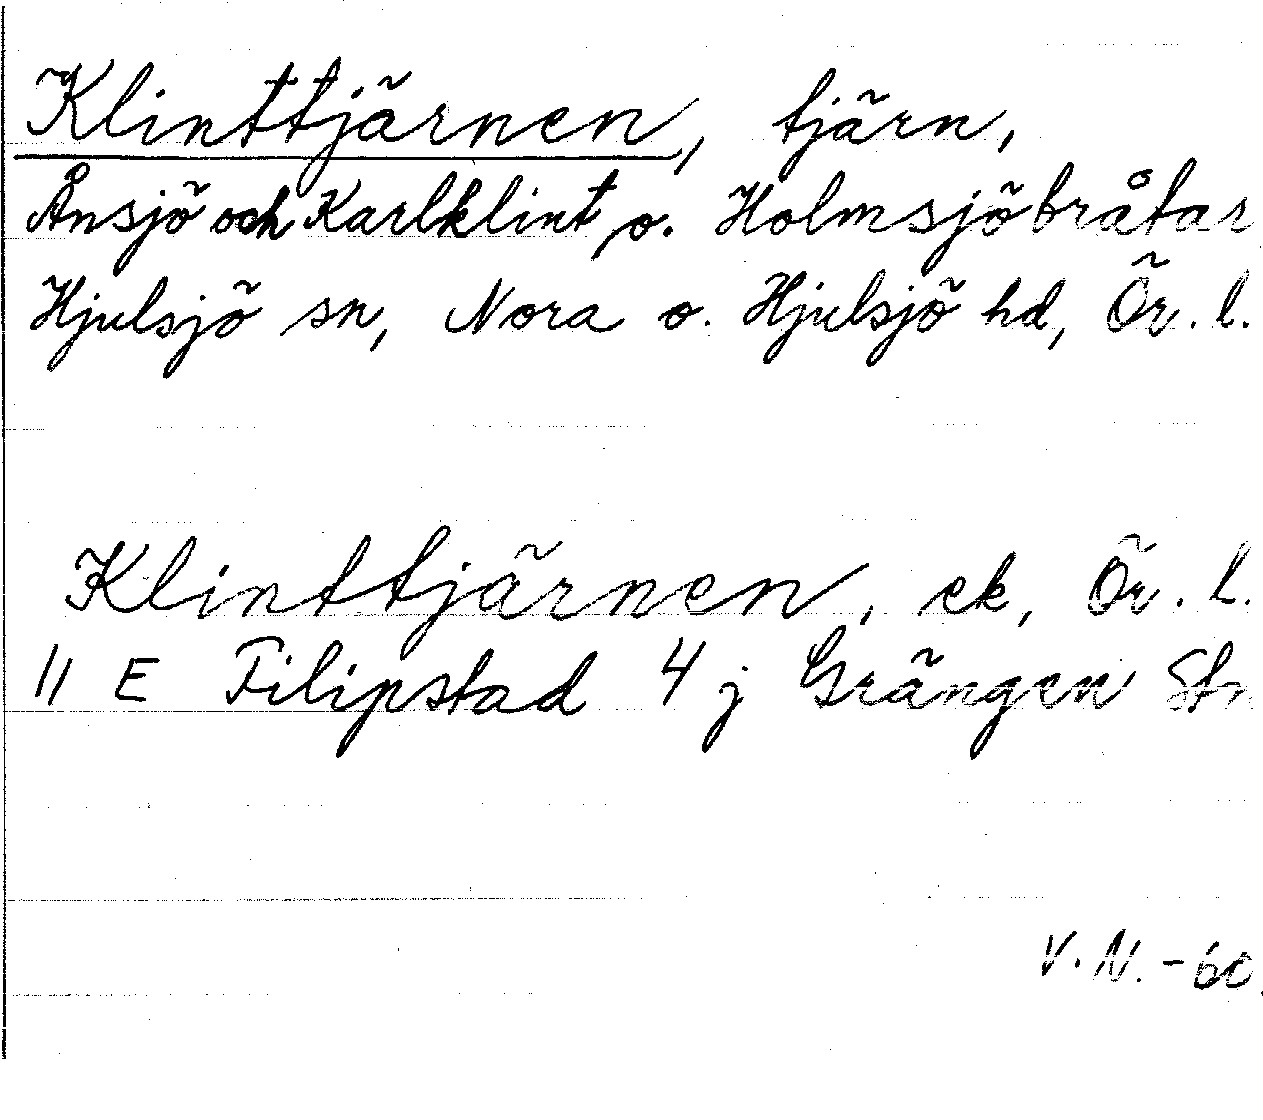 Klinttjärnen, tjärn,
Ånsjö och Karlklint o. Holmsjöbråtar
Hjulsjö sn, Nora o. Hjulsjö hd, Ör. l.
Klinttjärnen, ek, Ör. l.
11 E Filipstad 4 j Grängen Stn
V. N. -60.